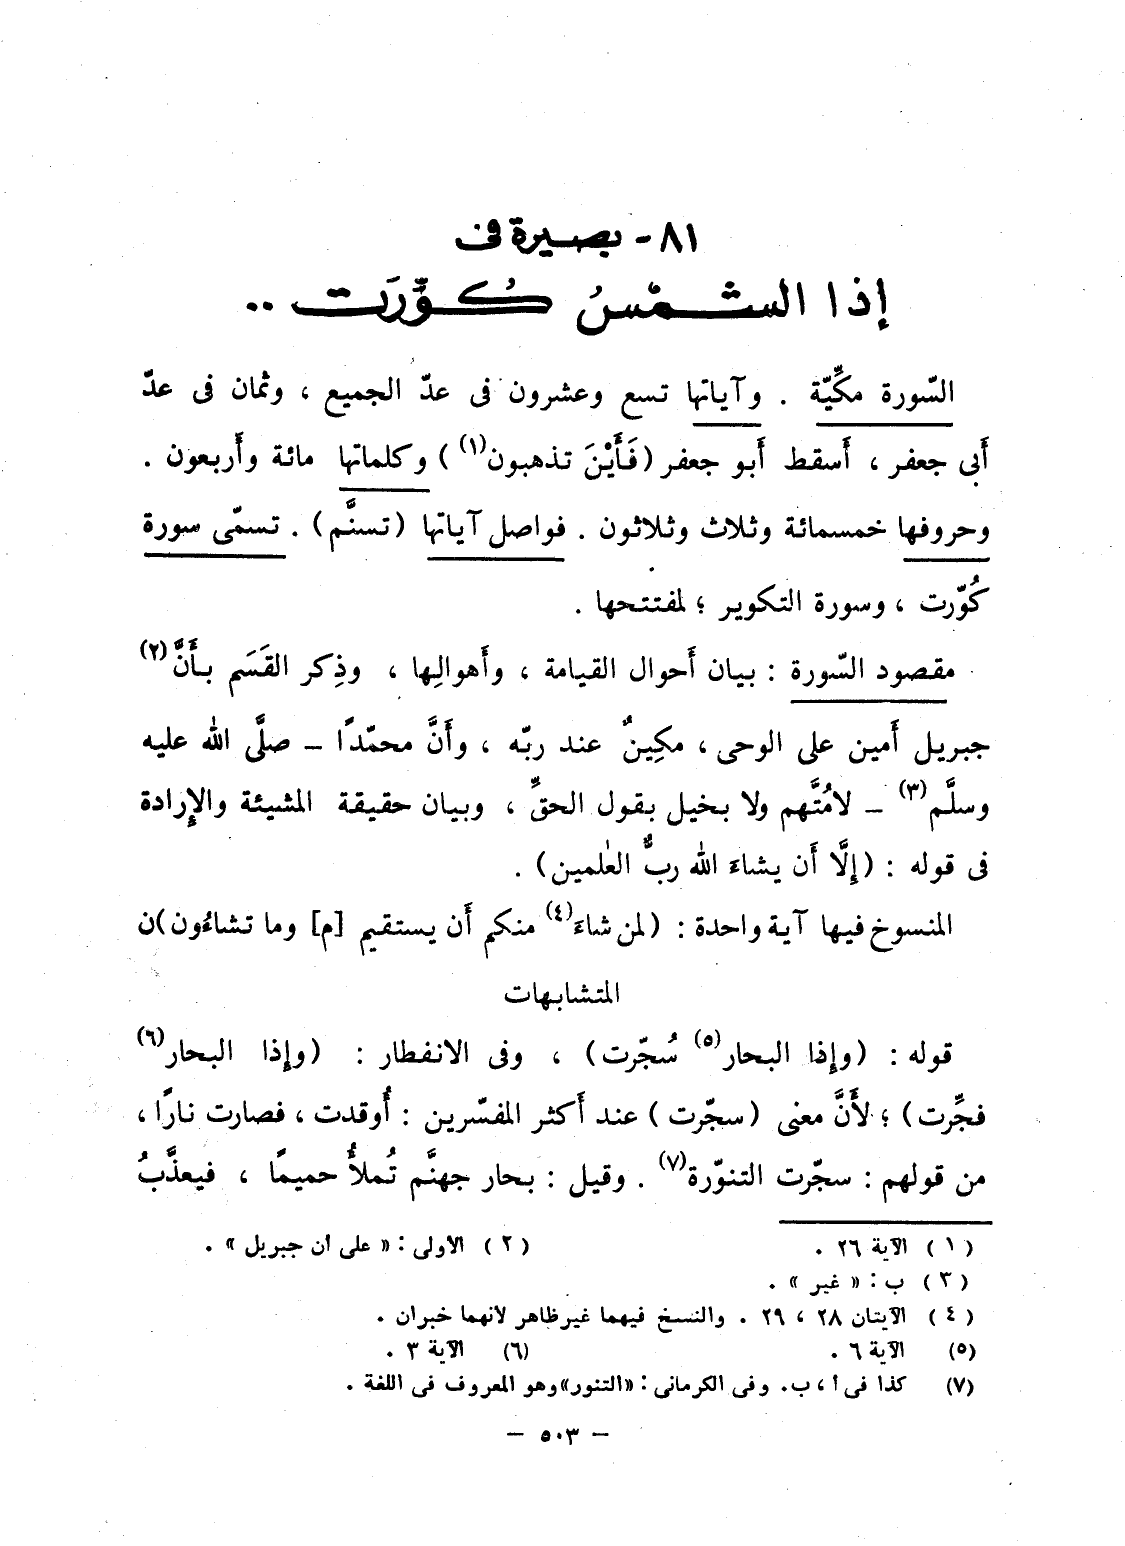 ٨١ - بصيرة فى
إذا الشمْسُ كُوِّرَت ..
السّورة مكِّيّة . وآياتها تسع وعشرون فى عدّ الجميع ، وثمان فى عدّ
أَبى جعفر ، أَسقط أَبو جعفر (فَأَيْنَ تذهبون(١)) وكلماتها مائة وأَربعون .
وحروفها خمسمائة وثلاث وثلاثون . فواصل آياتها (تسنَّم) . تسمّى سورة
كُوّرت ، وسورة التكوير ؛ لمفتتحها .
مقصود السّورة : بيان أَحوال القيامة ، وأَهوالِها ، وذِكر القَسَم بأَنَّ(٢)
جبريل أَمين على الوحى ، مكِينٌ عند ربّه ، وأَنَّ محمّدًا – صلَّى الله عليه
وسلَّم(٣) – لامُتَّهم ولا بخيل بقول الحقِّ ، وبيان حقيقة المشيئة والإِرادة
فى قوله : (إِلَّا أَن يشاءَ الله ربُّ العٰلمين) .
المنسوخ فيها آية واحدة : (لمن شاءَ(٤) منكم أَن يستقيم [م] وما تشاءُون)ن
المتشابهات
قوله : (وإِذا البحار(٥) سُجّرت) ، وفى الانفطار : (وإِذا البحار(٦)
فجِّرت) ؛ لأَنَّ معنى (سجّرت) عند أَكثر المفسّرين : أُوقدت ، فصارت نارًا ،
من قولهم : سجّرت التنوّرة(٧) . وقيل : بحار جهنَّم تُملأُ حميمًا ، فيعذَّبُ
(١) الآية ٢٦ . (٢) الأولى : « على أن جبريل » .
(٣) ب : « غير » .
(٤) الآيتان ٢٨ ، ٢٩ . والنسخ فيهما غير ظاهر لأنهما خبران .
(٥) الآية ٦ . (٦) الآية ٣ .
(٧) كذا فى أ ، ب. وفى الكرمانى : «التنور» وهو المعروف فى اللغة .
– ٥٠٣ –